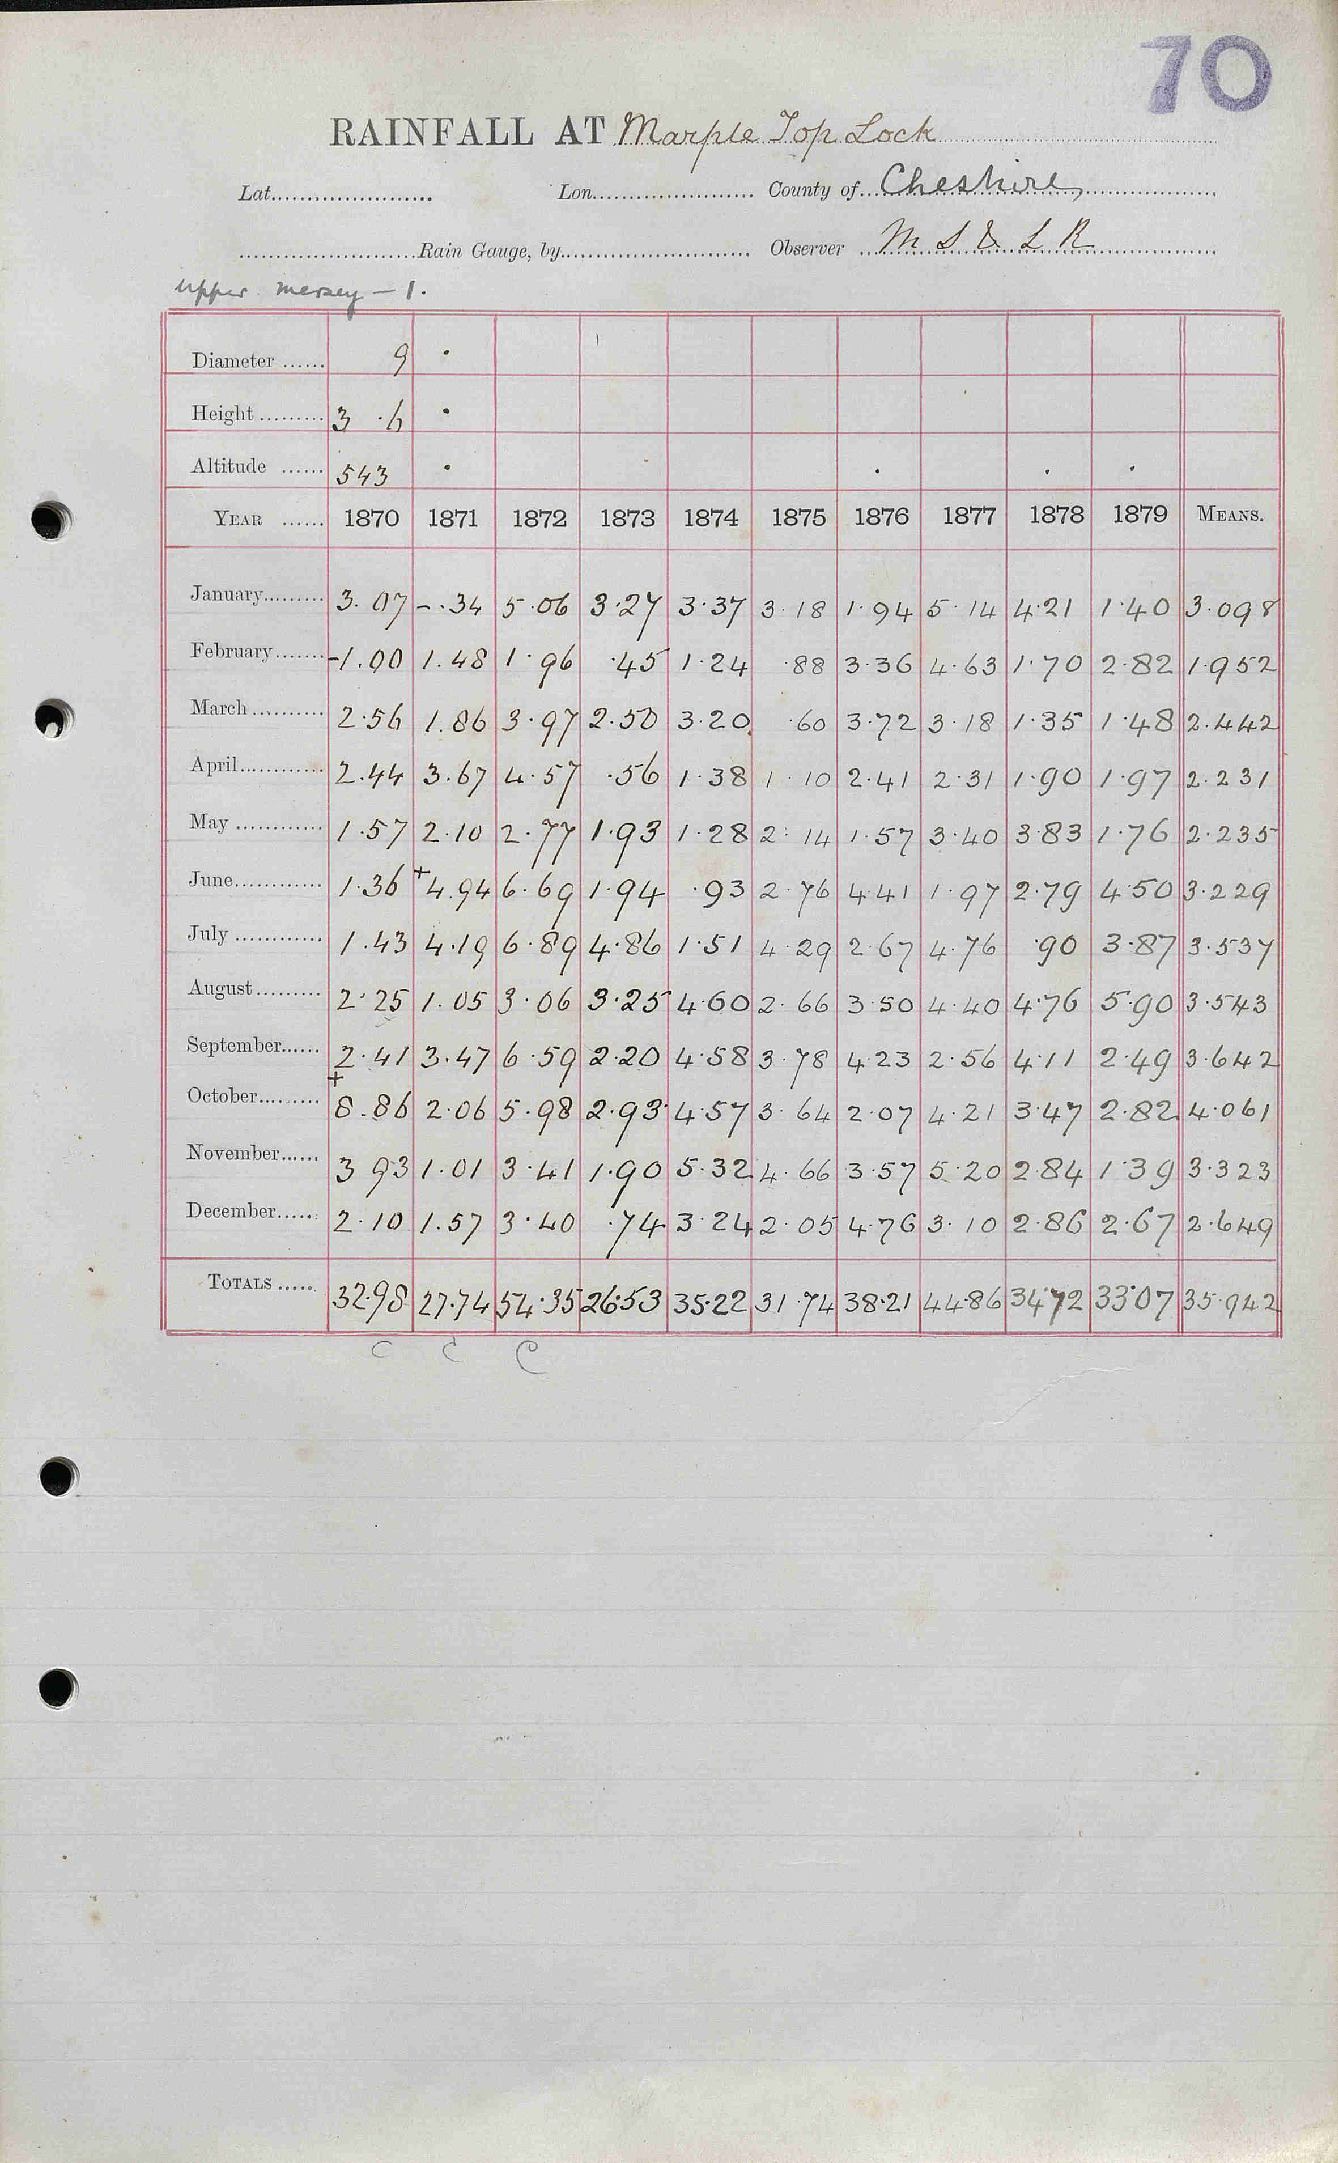 70
RAINFALL AT Marple Top Lock
Lat. Lon. County of Cheshire,
Rain Gauge, by Observer M S & L R
Upper Mersey - 1.
Diameter 9 ·
Height 3 · 6 ·
Altitude 543 · · · ·
YEAR 1870 1871 1872 1873 1874 1875 1876 1877 1878 1879 MEANS.
January 3.07 -.34 5.06 3.27 3.37 3.18 1.94 5.14 4.21 1.40 3.098
February -1.00 1.48 1.96 .45 1.24 .88 3.36 4.63 1.70 2.82 1.952
March 2.56 1.86 3.97 2.50 3.20 .60 3.72 3.18 1.35 1.48 2.442
April 2.44 3.67 4.57 .56 1.38 1.10 2.41 2.31 1.90 1.97 2.231
May 1.57 2.10 2.77 1.93 1.28 2.14 1.57 3.40 3.83 1.76 2.235
June 1.36 +4.94 6.69 1.94 .93 2.76 4.41 1.97 2.79 4.50 3.229
July 1.43 4.19 6.89 4.86 1.51 4.29 2.67 4.76 .90 3.87 3.537
August 2.25 1.05 3.06 3.25 4.60 2.66 3.50 4.40 4.76 5.90 3.543
September 2.41 3.47 6.59 2.20 4.58 3.78 4.23 2.56 4.11 2.49 3.642
October +8.86 2.06 5.98 2.93 4.57 3.64 2.07 4.21 3.47 2.82 4.061
November 3.93 1.01 3.41 1.90 5.32 4.66 3.57 5.20 2.84 1.39 3.323
December 2.10 1.57 3.40 .74 3.24 2.05 4.76 3.10 2.86 2.67 2.649
TOTALS 32.98 27.74 54.35 26.53 35.22 31.74 38.21 44.86 34.72 33.07 35.942
C C C